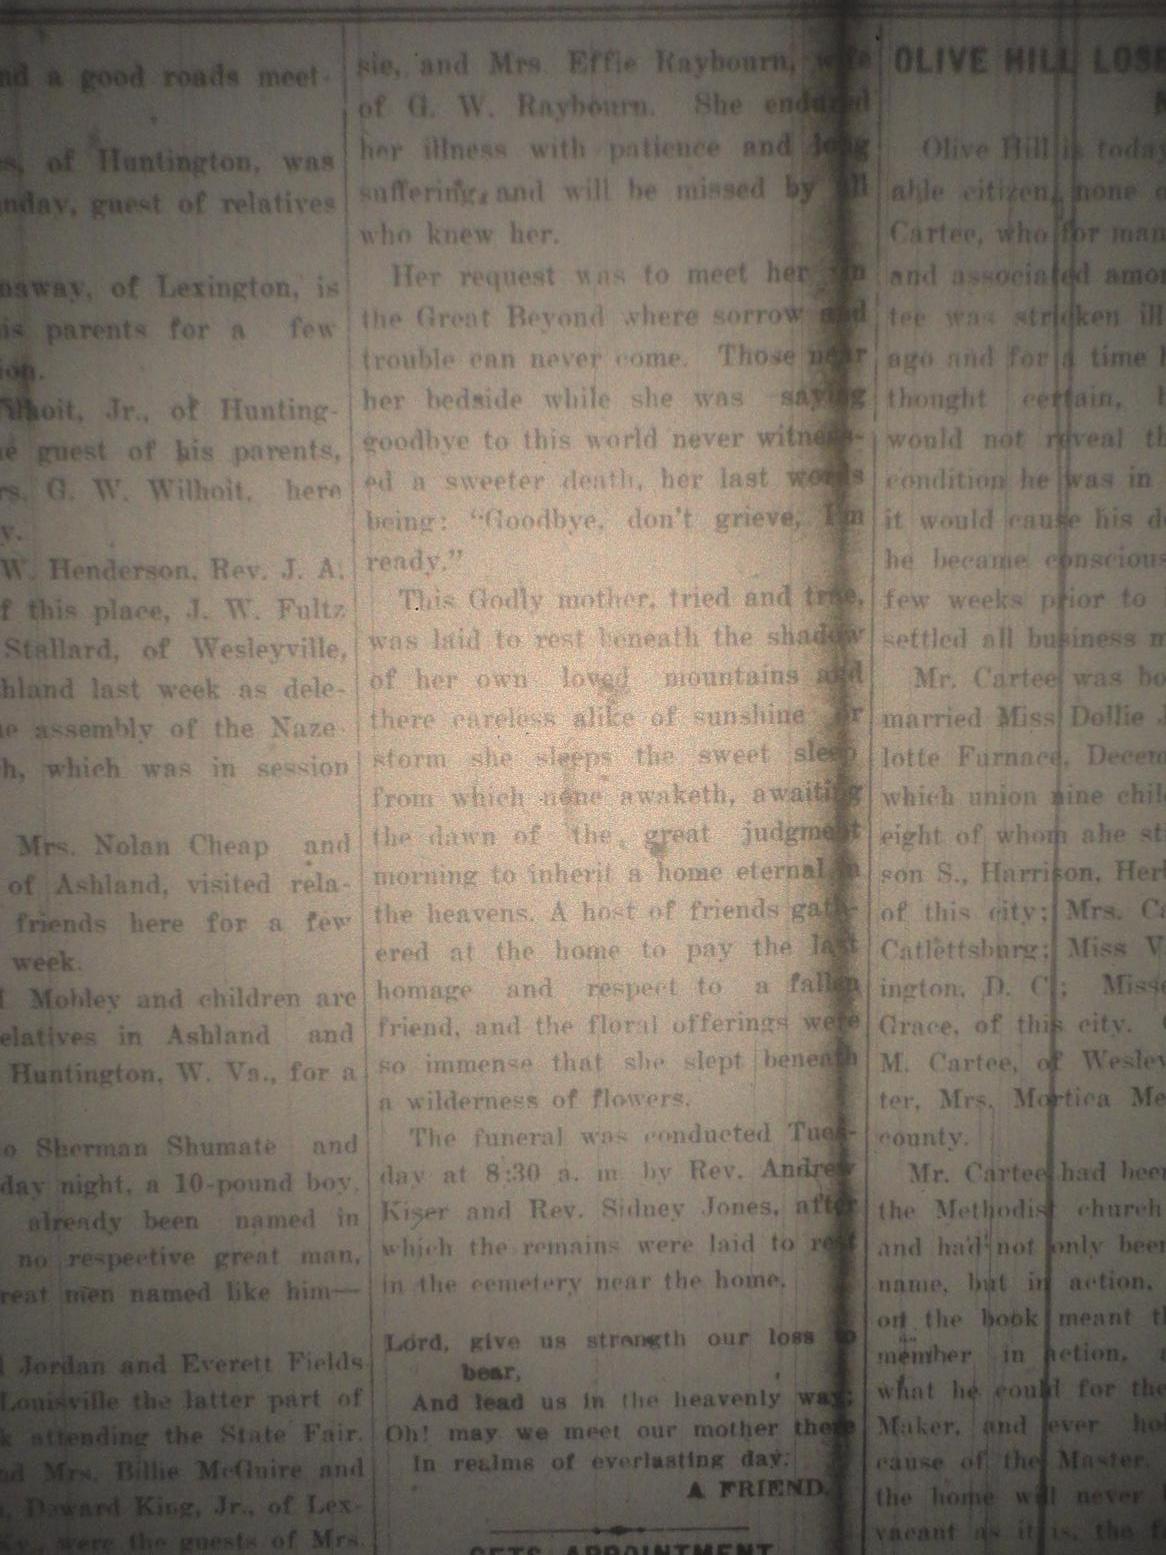 nd a good roads meet-
of Huntington, was
nday, guest of relatives
naway, of Lexington, is
is parents for a few
ion.
lhoit, Jr., of Hunting-
e guest of his parents,
rs. G. W. Wilhoit, here
y.
W. Henderson, Rev. J. A.
f this place, J. W. Fultz
Stallard, of Wesleyville,
hland last week as dele-
e assembly of the Naze-
h, which was in session
Mrs. Nolan Cheap and
of Ashland, visited rela-
friends here for a few
week.
Mobley and children are
elatives in Ashland and
Huntington, W. Va., for a
o Sherman Shumate and
day night, a 10-pound boy.
already been named in
no respective great man,
reat men named like him—
Jordan and Everett Fields
Louisville the latter part of
k attending the State Fair.
nd Mrs. Billie McGuire and
Daward King, Jr., of Lex-
Ky., were the guests of Mrs.
sie, and Mrs. Effie Raybourn, wife
of G. W. Raybourn. She endured
her illness with patience and long
suffering, and will be missed by all
who knew her.
Her request was to meet her in
the Great Beyond where sorrow and
trouble can never come. Those near
her bedside while she was saying
goodbye to this world never witness-
ed a sweeter death, her last words
being: "Goodbye, don't grieve, I'm
ready."
This Godly mother, tried and true,
was laid to rest beneath the shadow
of her own loved mountains and
there careless alike of sunshine or
storm she sleeps the sweet sleep
from which none awaketh, awaiting
the dawn of the great judgment
morning to inherit a home eternal in
the heavens. A host of friends gath-
ered at the home to pay the last
homage and respect to a fallen
friend, and the floral offerings were
so immense that she slept beneath
a wilderness of flowers.
The funeral was conducted Tues-
day at 8:30 a. m by Rev. Andrew
Kiser and Rev. Sidney Jones, after
which the remains were laid to rest
in the cemetery near the home.
Lord, give us strength our loss to
bear,
And lead us in the heavenly way;
Oh! may we meet our mother there
In realms of everlasting day.
A FRIEND.
GETS APPOINTMENT
OLIVE HILL LOSE
Olive Hill is today
able citizen, none o
Cartee, who for man
and associated amon
tee was stricken ill
ago and for a time h
thought certain,
would not reveal th
condition he was in
it would cause his de
he became conscious
few weeks prior to
settled all business m
Mr. Cartee was bo
married Miss Dollie
lotte Furnace, Decem
which union nine chil
eight of whom ahe st
son S., Harrison, Her
of this city; Mrs. Ca
Catlettsburg; Miss V
ington, D. C.; Misse
Grace, of this city.
M. Cartee, of Wesley
ter, Mrs. Mortica Me
county.
Mr. Cartee had been
the Methodist church
and had not only been
name, but in action.
on the book meant th
member in action,
what he could for the
Maker, and ever ho
cause of the Master.
the home will never
vacant as it is, the f